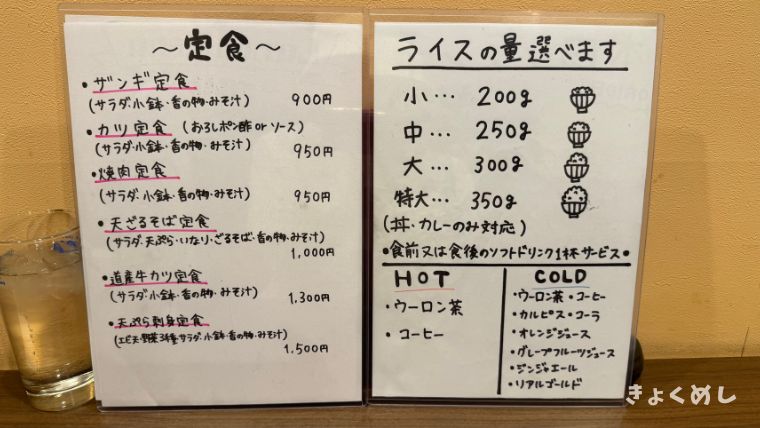 ～定食～
・ザンギ定食
(サラダ・小鉢・香の物・みそ汁) 900円
・カツ定食 (おろしポン酢orソース)
(サラダ・小鉢・香の物・みそ汁) 950円
・焼肉定食
(サラダ・小鉢・香の物・みそ汁) 950円
・天ざるそば定食
(サラダ・天ぷら・いなり・ざるそば・香の物・みそ汁)
1,000円
・道産牛カツ定食
(サラダ・小鉢・香の物・みそ汁) 1,300円
・天ぷら刺身定食
(エビ天・野菜3種・サラダ・小鉢・香の物・みそ汁)
1,500円
ライスの量選べます
小… 200g
中… 250g
大… 300g
特大… 350g
(丼・カレーのみ対応)
・食前又は食後のソフトドリンク1杯サービス・
HOT
・ウーロン茶
・コーヒー
COLD
・ウーロン茶・コーヒー
・カルピス・コーラ
・オレンジジュース
・グレープフルーツジュース
・ジンジャエール
・リアルゴールド
きょくめし